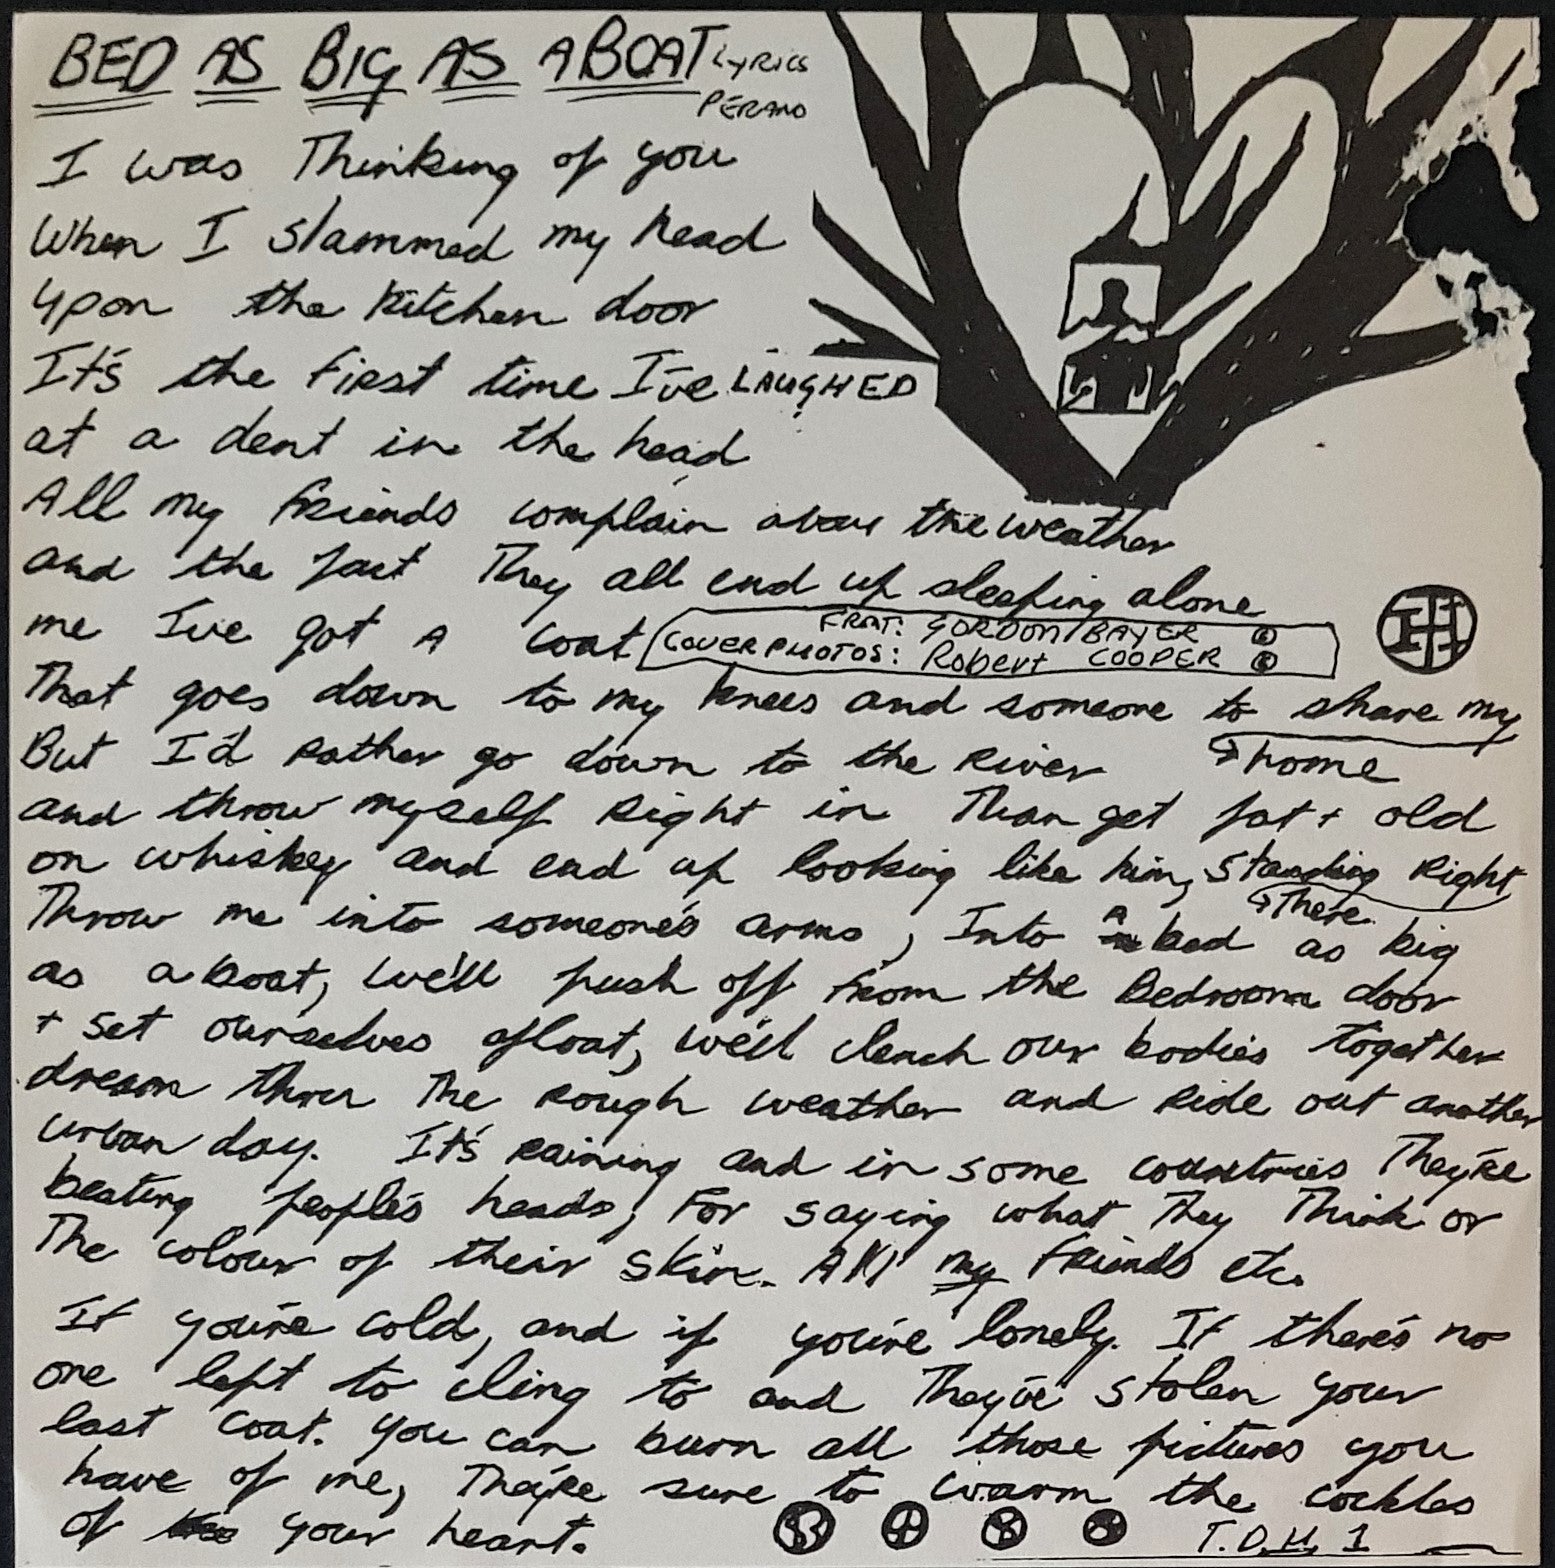 BED AS BIG AS A BOAT LYRICS
PERANO
I was Thinking of you
When I slammed my head
upon the kitchen door
It's the first time I've LAUGHED
at a dent in the head
All my friends complain about the weather
and the fact They all end up sleeping alone
me I've got A coat
FRONT: GORDON BAYER ©
COVER PHOTOS: Robert COOPER ©
That goes down to my knees and someone to share my
home
But I'd Rather go down to the River
and throw myself Right in Than get fat + old
on whiskey and end up looking like him, standing Right
There.
Throw me into someone's arms, Into a bed as big
as a boat, We'll push off from the Bedroom door
+ set ourselves afloat, we'll clench our bodies together
dream thru The Rough weather and Ride out another
urban day. It's Raining and in some countries They're
beating people's heads, For saying what They Think or
The colour of their skin. All my friends etc.
If you're cold, and if you're lonely. If there's no
one left to cling to and They've stolen your
last coat. You can burn all those pictures you
have of me, They're sure to warm the cockles
of your heart.
T.D.H. 1